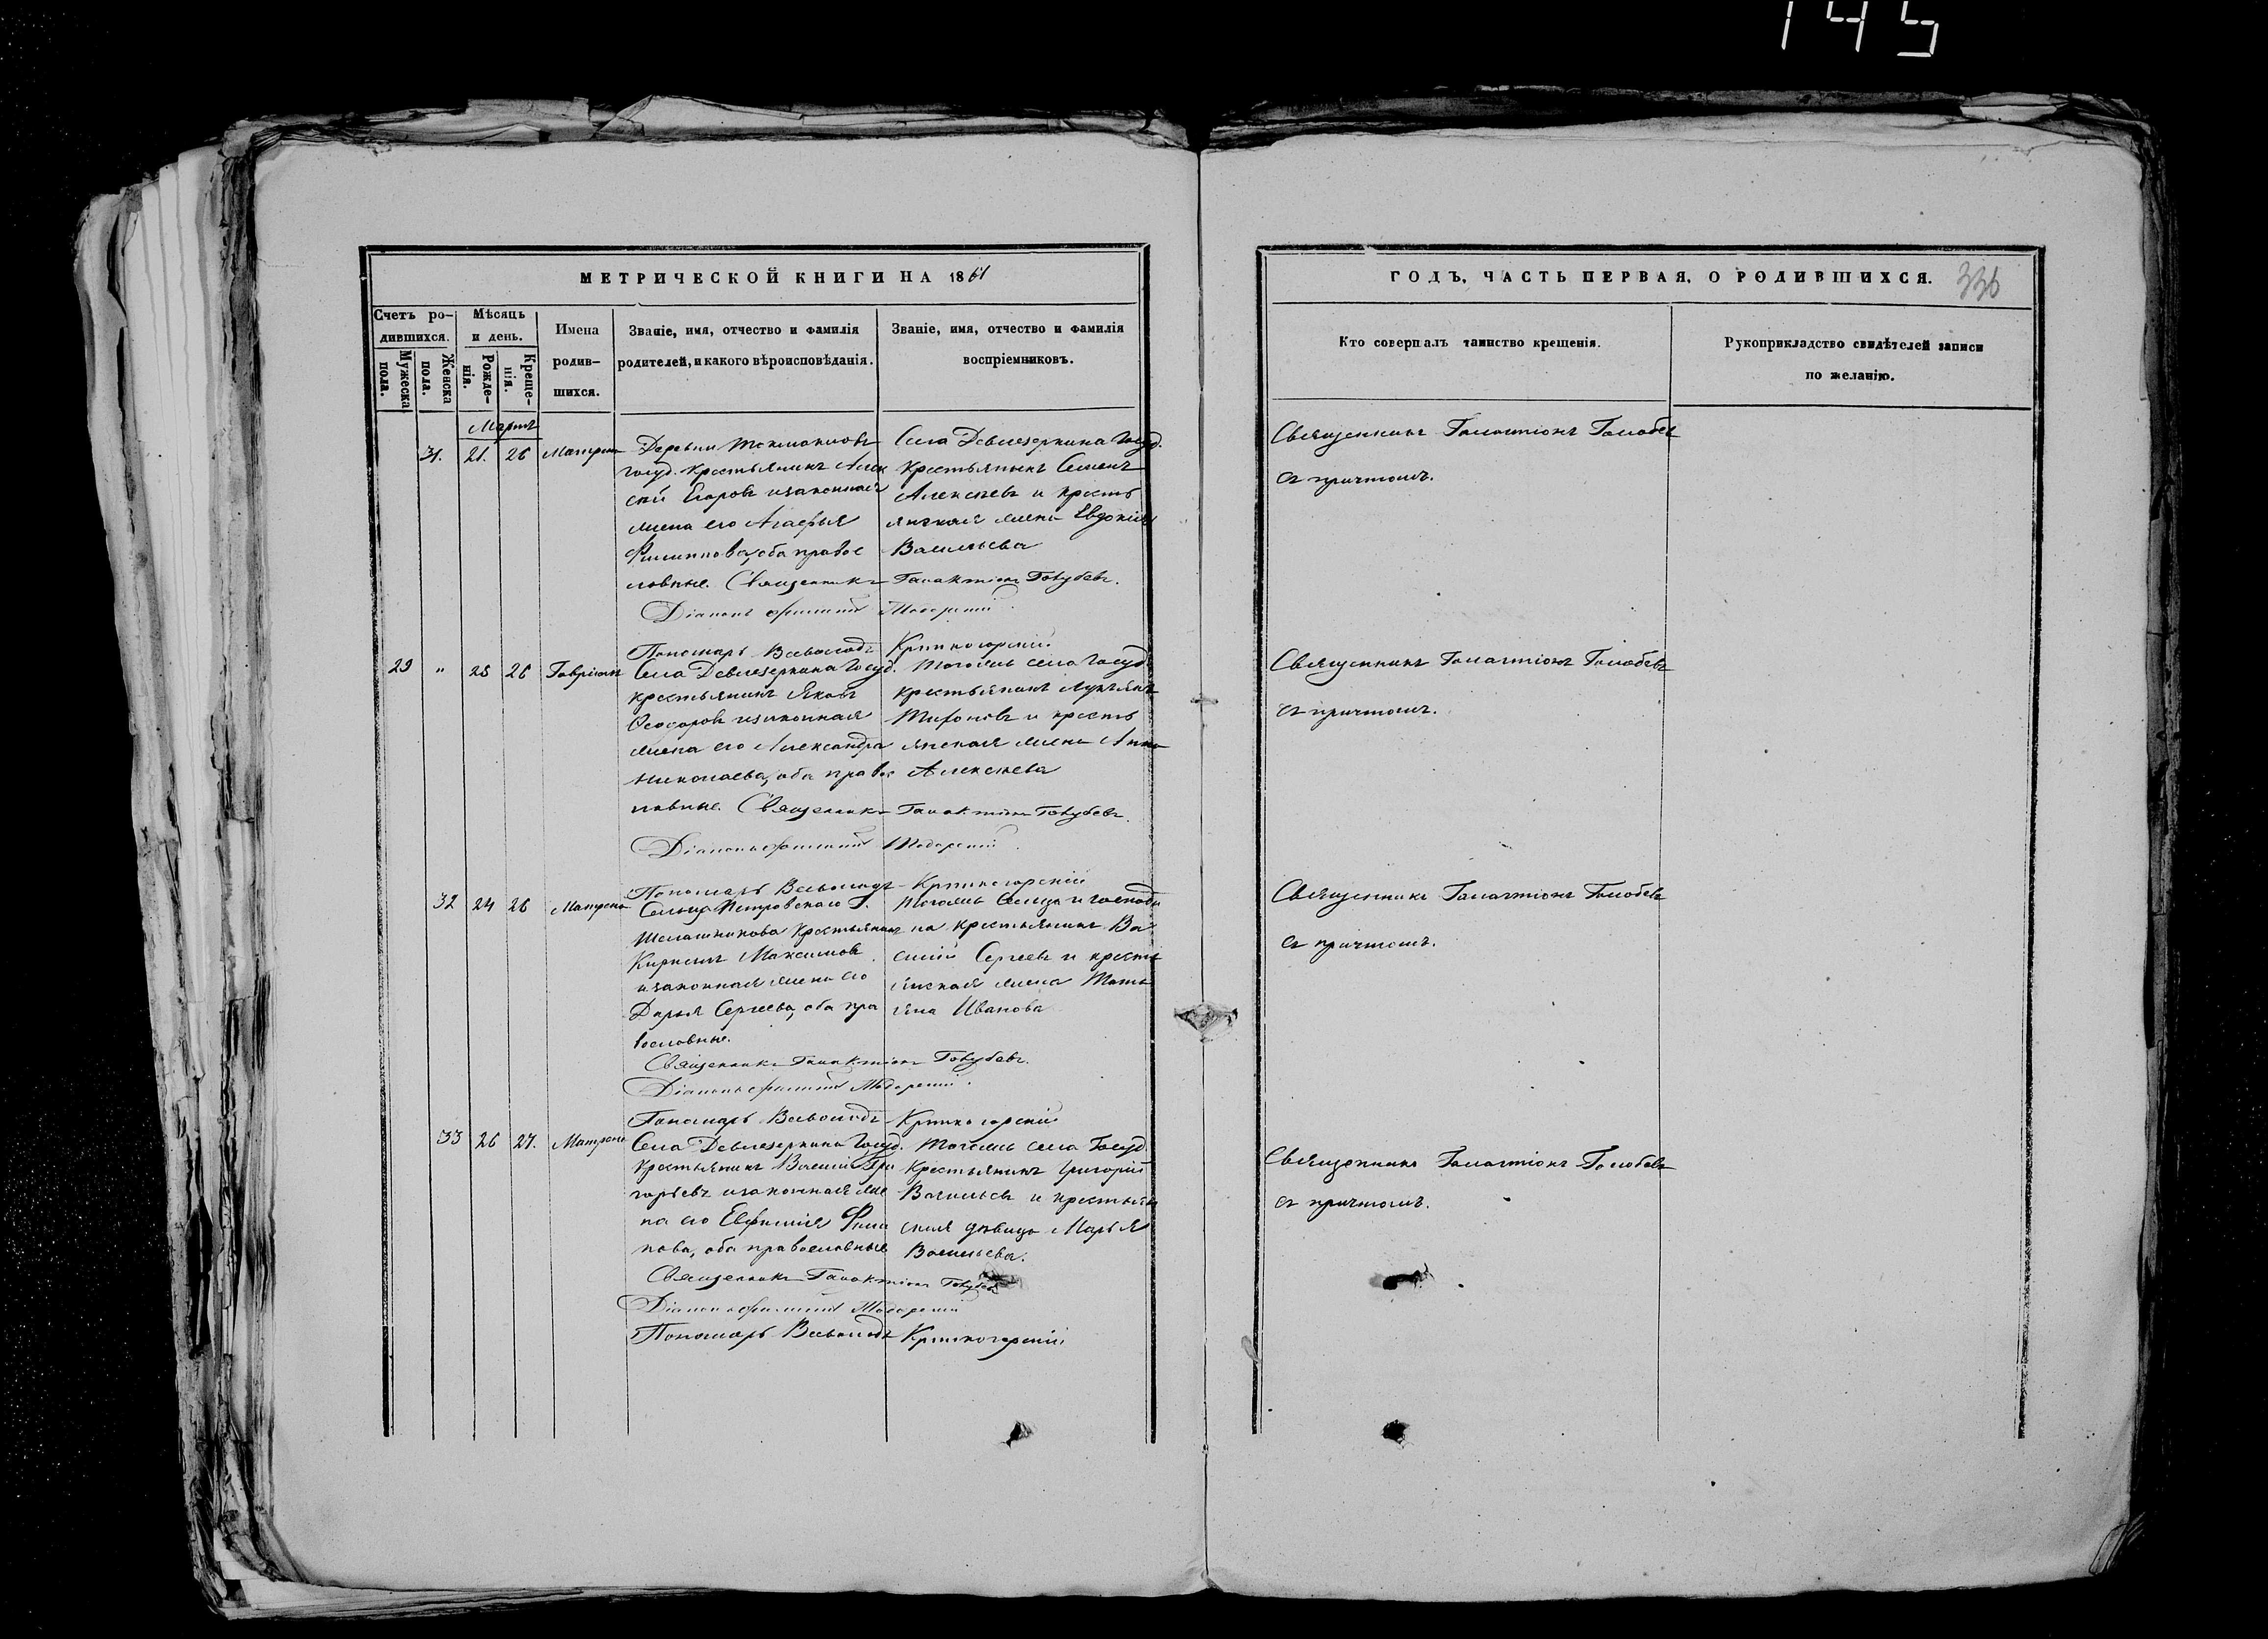 145
МЕТРИЧЕСКОЙ КНИГИ НА 1861
Счетъ ро-
дившихся.
Мужеска
пола.
Женска
пола.
Мѣсяцъ
и день.
Рожде-
нія.
Креще-
нія.
Имена
родив-
шихся.
Званіе, имя, отчество и фамилія
родителей, и какого вѣроисповѣданія.
Званіе, имя, отчество и фамилія
воспріемниковъ.
Мартъ
31. 21. 26 Матрона
Деревни
госуд. крестьянинъ Алек
сѣй Егоровъ и законная
жена его Агафья
Филиппова, оба правос
лавные. Священникъ Галактіонъ Голубевъ.
Села Девлезеркина Госуд.
крестьянинъ Семенъ
Алексѣевъ и кресть
янская жена Евдокія
Васильева
Діаконъ
Пономарь Всеволодъ
29 " 25 26 Гавріилъ
Села Девлезеркина Госуд.
крестьянинъ Яковъ
Ѳеодоровъ и законная
жена его Александра
Николаева, оба правос
лавные. Священникъ Галактіонъ Голубевъ.
Тогожъ села Госуд.
крестьянинъ Лукьянъ
Тифоновъ и кресть
янская жена Анна
Алексѣева
Діаконъ
Пономарь Всеволодъ
32 24 26 Матрона
Сельца Петровскаго Г.
Шелашникова крестьянинъ
Кириллъ Максимовъ
и законная жена его
Дарья Сергеева, оба пра
вославные.
Тогожъ сельца и господи
на крестьянинъ Ва
силій Сергеевъ и кресть
янская жена Тать
яна Иванова
Священникъ Галактіонъ Голубевъ.
Діаконъ
Пономарь Всеволодъ
33 26 27. Матрона
Села Девлезеркина Госуд.
крестьянинъ Василій Гри
горьевъ и законная же
на его Евфимія
пова, оба православные
Тогожъ села Госуд.
крестьянинъ Григорій
Васильевъ и крестьян
ская дѣвица Марья
Васильева.
Священникъ Галактіонъ Голубевъ
Діаконъ
Пономарь Всеволодъ
ГОДЪ, ЧАСТЬ ПЕРВАЯ, О РОДИВШИХСЯ.
336
Кто совершалъ таинство крещенія.
Рукоприкладство свидѣтелей записи
по желанію.
Священникъ Галактіонъ Голубевъ
съ причтомъ.
Священникъ Галактіонъ Голубевъ
съ причтомъ.
Священникъ Галактіонъ Голубевъ
съ причтомъ.
Священникъ Галактіонъ Голубевъ
съ причтомъ.